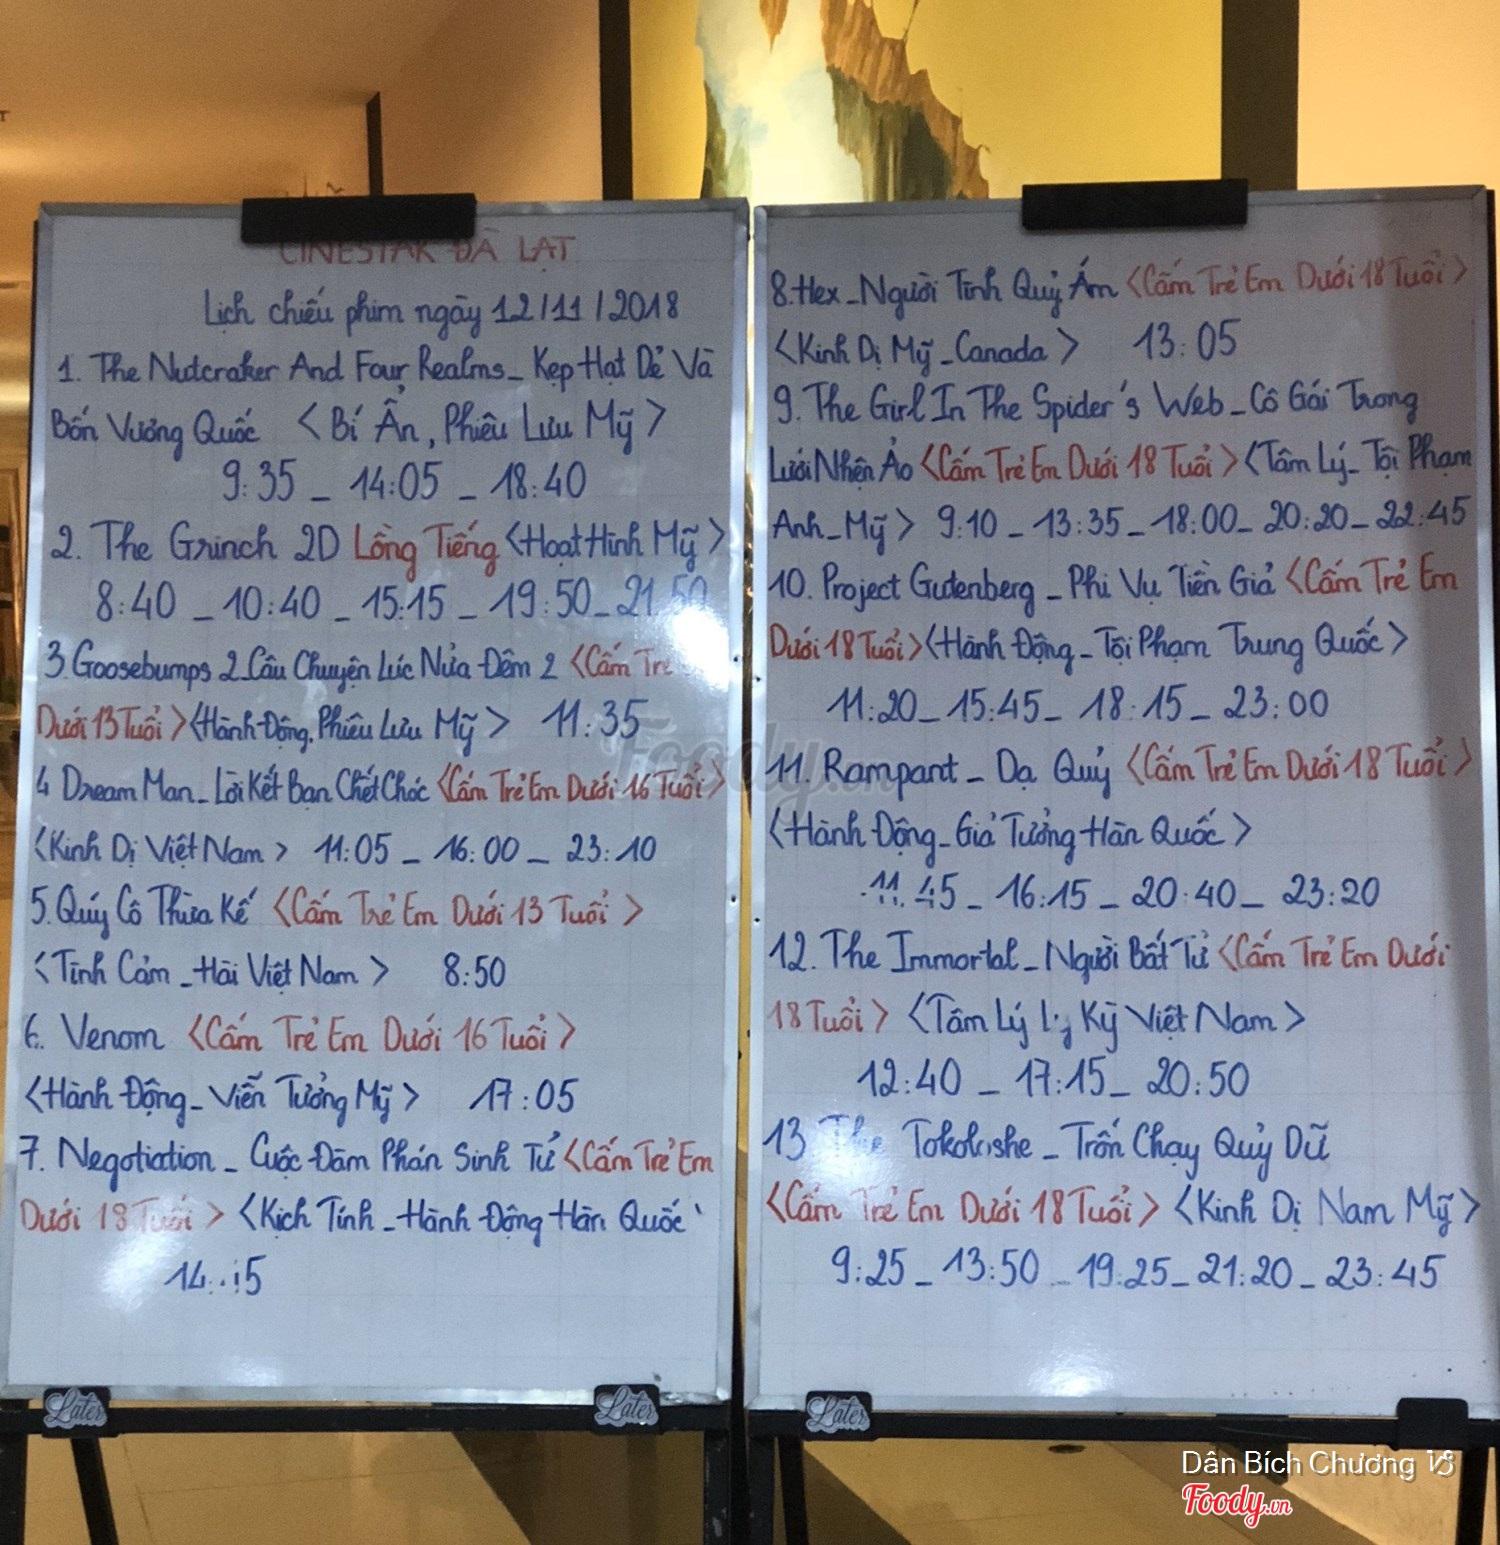 CINESTAR ĐÀ LẠT
Lịch chiếu phim ngày 12/11/2018
1. The Nutcraker And Four Realms_ Kẹp Hạt Dẻ Và
Bốn Vương Quốc <Bí Ẩn, Phiêu Lưu Mỹ>
9:35 _ 14:05 _ 18:40
2. The Grinch 2D Lồng Tiếng <Hoạt Hình Mỹ>
8:40 _ 10:40 _ 15:15 _ 19:50 _ 21:50
3. Goosebumps 2_Câu Chuyện Lúc Nửa Đêm 2 <Cấm Trẻ
Dưới 13 Tuổi> <Hành Động, Phiêu Lưu Mỹ> 11:35
4 Dream Man_ Lời Kết Bạn Chết Chóc <Cấm Trẻ Em Dưới 16 Tuổi>
<Kinh Dị Việt Nam> 11:05 _ 16:00 _ 23:10
5. Quý Cô Thừa Kế <Cấm Trẻ Em Dưới 13 Tuổi>
<Tình Cảm _ Hài Việt Nam> 8:50
6. Venom <Cấm Trẻ Em Dưới 16 Tuổi>
<Hành Động_ Viễn Tưởng Mỹ> 17:05
7. Negotiation_ Cuộc Đàm Phán Sinh Tử <Cấm Trẻ Em
Dưới 18 Tuổi> <Kịch Tính_ Hành Động Hàn Quốc
8. Hex_Người Tình Quỷ Ám <Cấm Trẻ Em Dưới 18 Tuổi>
<Kinh Dị Mỹ_Canada> 13:05
9. The Girl In The Spider's Web_ Cô Gái Trong
Lưới Nhện Ảo <Cấm Trẻ Em Dưới 18 Tuổi> <Tâm Lý_ Tội Phạm
Anh_Mỹ> 9:10 _ 13:35 _ 18:00 _ 20:20 _ 22:45
10. Project Gutenberg_ Phi Vụ Tiền Giả <Cấm Trẻ Em
Dưới 18 Tuổi> <Hành Động_ Tội Phạm Trung Quốc>
11:20 _ 15:45 _ 18:15 _ 23:00
11. Rampant_ Dạ Quỷ <Cấm Trẻ Em Dưới 18 Tuổi>
<Hành Động_ Giả Tưởng Hàn Quốc>
11:45 _ 16:15 _ 20:40 _ 23:20
12. The Immortal_ Người Bất Tử <Cấm Trẻ Em Dưới
18 Tuổi> <Tâm Lý Ly Kỳ Việt Nam>
12:40 _ 17:15 _ 20:50
13 The Tokoloshe_ Trốn Chạy Quỷ Dữ
<Cấm Trẻ Em Dưới 18 Tuổi> <Kinh Dị Nam Mỹ>
9:25 _ 13:50 _ 19:25 _ 21:20 _ 23:45
Later Later Later
Foody.vn
Dân Bích Chương
Foody.vn